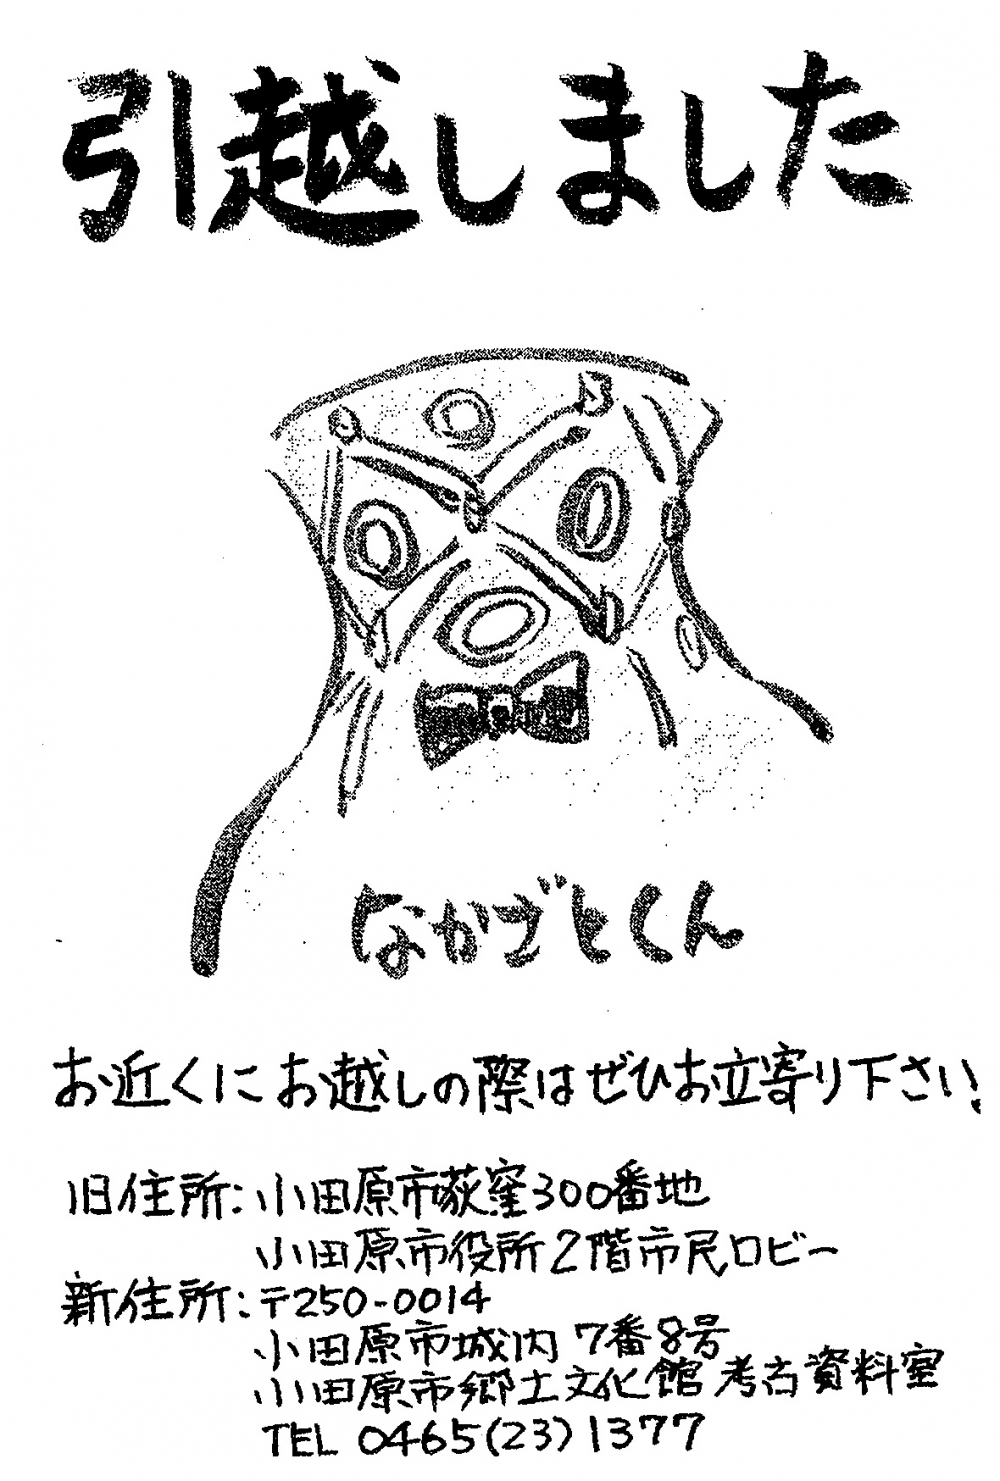 引越しました
なかざとくん
お近くにお越しの際はぜひお立寄り下さい!
旧住所:小田原市荻窪300番地
小田原市役所2階市民ロビー
新住所:〒250-0014
小田原市城内7番8号
小田原市郷土文化館 考古資料室
TEL 0465(23)1377